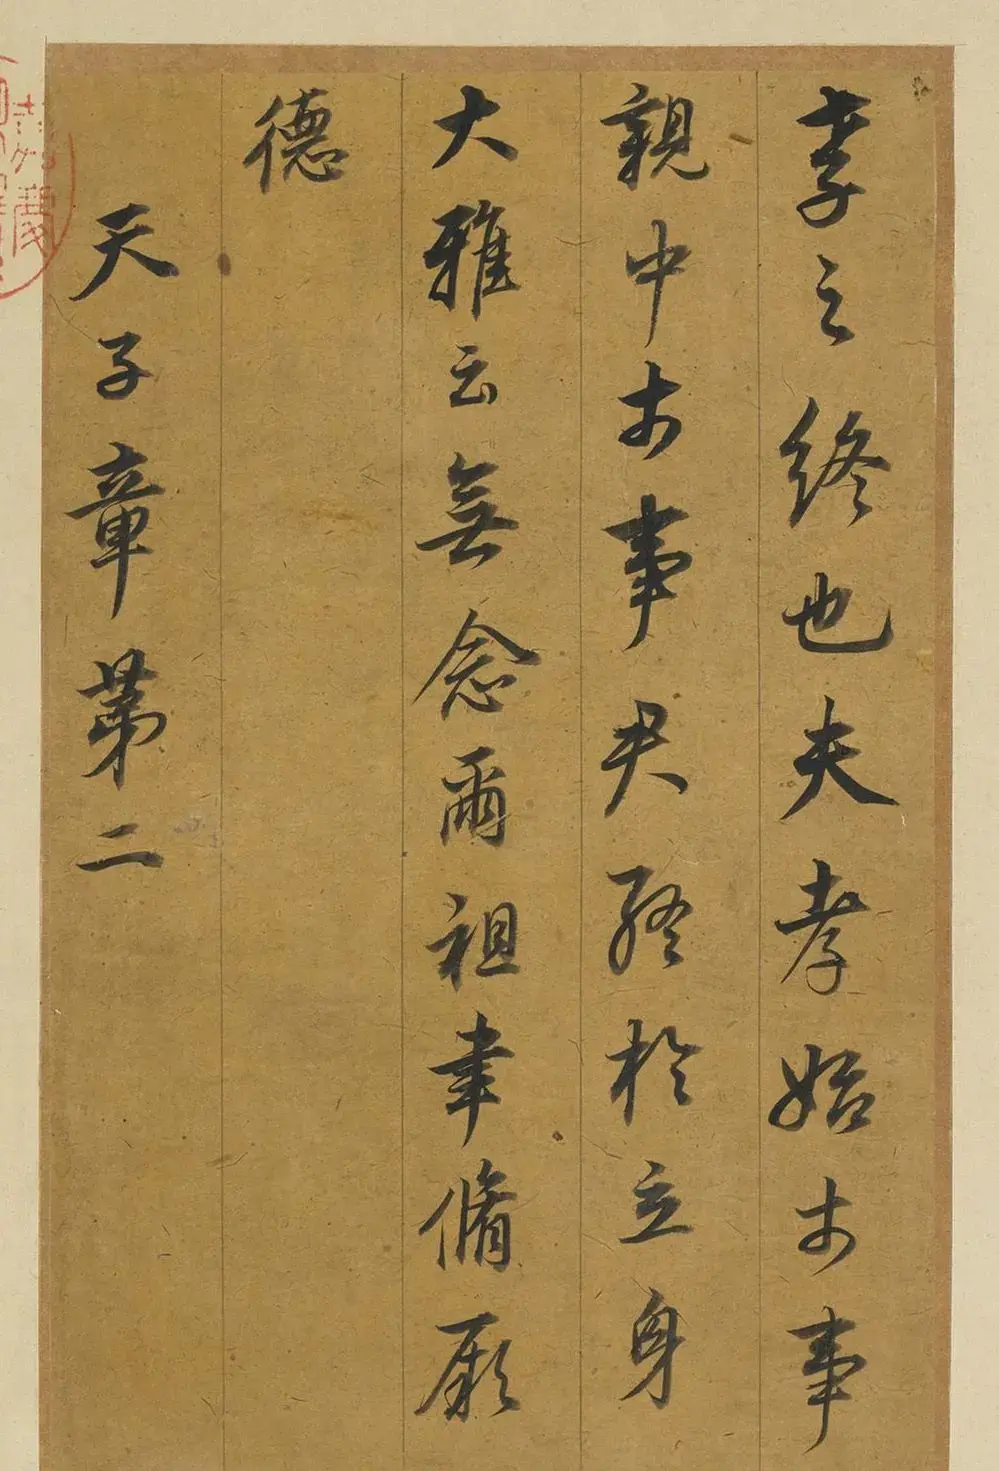 孝之終也夫孝始于事
親中于事君終於立身
大雅云無念爾祖聿脩厥
德
天子章第二